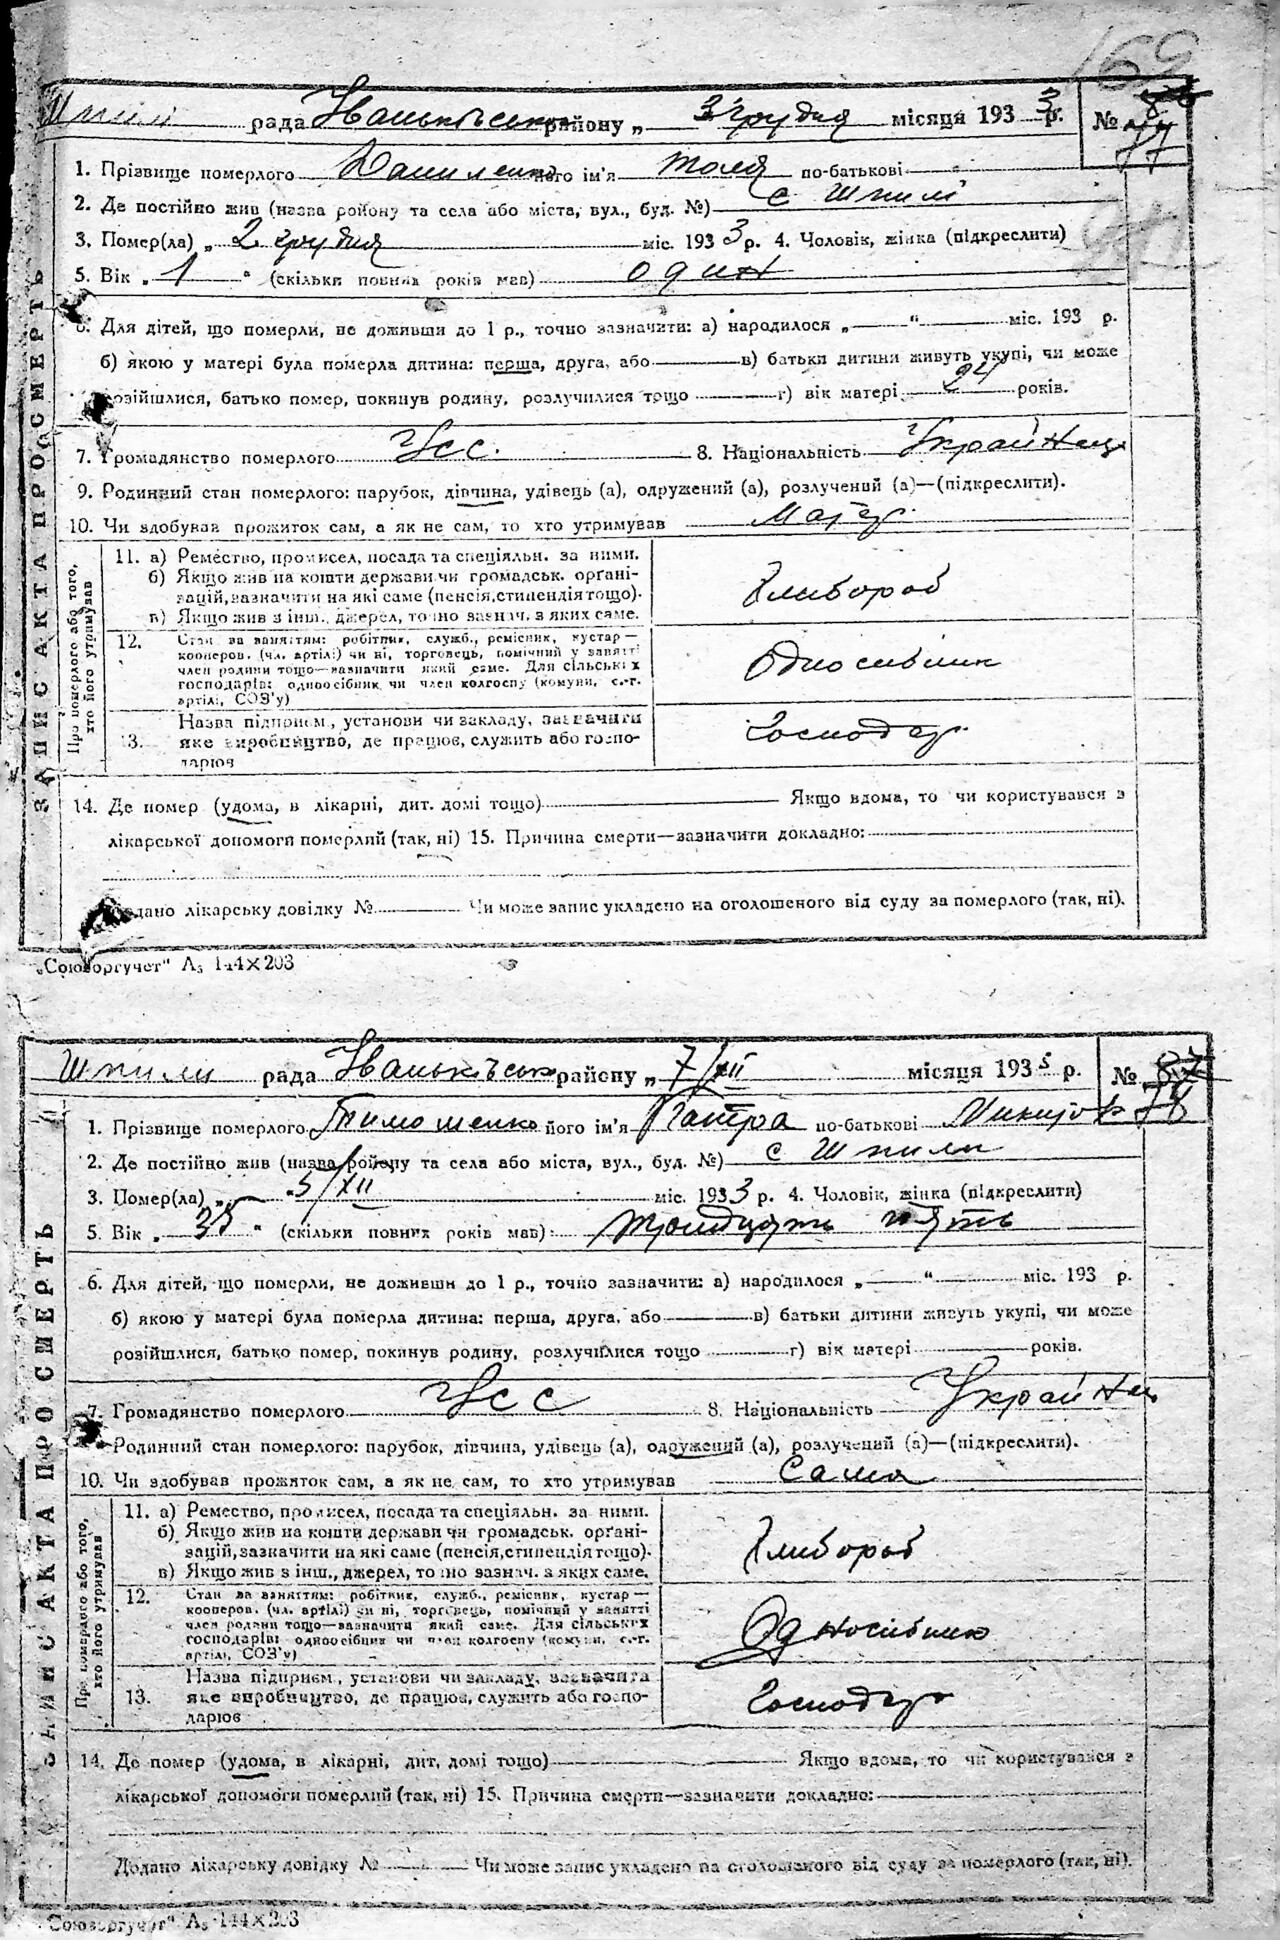 169
Шпилі рада Іваньківського району „ 3 грудня місяця 1933 р. № 77
1. Прізвище померлого Даниленко його ім'я Толя по-батькові
2. Де постійно жив (назва району та села або міста, вул., буд. №) с Шпилі
3. Помер(ла) „ 2 грудня міс. 1933 р. 4. Чоловік, жінка (підкреслити)
5. Вік „ 1 “ (скільки повних років мав) один
6. Для дітей, що померли, не доживши до 1 р., точно зазначити: а) народилося „ “ міс. 193 р.
б) якою у матері була померла дитина: перша, друга, або в) батьки дитини живуть укупі, чи може
розійшлися, батько помер, покинув родину, розлучилися тощо г) вік матері 24 років.
7. Громадянство померлого Усс. 8. Національність Украйнец
9. Родинний стан померлого: парубок, дівчина, удівець (а), одружений (а), розлучений (а)—(підкреслити).
10. Чи здобував прожиток сам, а як не сам, то хто утримував
ЗАПИС АКТА ПРО СМЕРТЬ
Про померлого або того, хто його утримував
11. а) Ремество, промисел, посада та спеціяльн. за ними.
б) Якщо жив на кошти держави чи громадськ. орґані-
зацій, зазначити на які саме (пенсія, стипендія тощо).
в) Якщо жив з інш., джерел, точно зазнач. з яких саме.
Хлибороб
12. Стан за заняттям: робітник, служб., ремісник, кустар—
кооперов. (чл. артілі) чи ні, торговець, помічний у занятті
член родини тощо—зазначити який саме. Для сільських
господарів: одноосібник чи член колгоспу (комуни, с.-г.
артілі, СОЗ'у)
Односибник
13. Назва підприєм., установи чи закладу, зазначити
яке виробництво, де працюв, служить або госпо-
дарюв
Господар
14. Де помер (удома, в лікарні, дит. домі тощо) Якщо вдома, то чи користувався з
лікарської допомоги померлий (так, ні) 15. Причина смерти—зазначити докладно:
Додано лікарську довідку № Чи може запис укладено на оголошеного від суду за померлого (так, ні).
„Союзоргучет“ А₅ 144×203
Шпили рада Іваньківськ району „ 7/XII місяця 1935 р. № 78
1. Прізвище померлого Тимошенко його ім'я по-батькові
2. Де постійно жив (назва району та села або міста, вул., буд. №) с Шпили
3. Помер(ла) „ 5/XII міс. 1933 р. 4. Чоловік, жінка (підкреслити)
5. Вік „ 35 “ (скільки повних років мав): тридцять пять
6. Для дітей, що померли, не доживши до 1 р., точно зазначити: а) народилося „ “ міс. 193 р.
б) якою у матері була померла дитина: перша, друга, або в) батьки дитини живуть укупі, чи може
розійшлися, батько помер, покинув родину, розлучилися тощо г) вік матері років.
7. Громадянство померлого Усс 8. Національність Украйнец
9. Родинний стан померлого: парубок, дівчина, удівець (а), одружений (а), розлучений (а)—(підкреслити).
10. Чи здобував прожиток сам, а як не сам, то хто утримував сама
ЗАПИС АКТА ПРО СМЕРТЬ
Про померлого або того, хто його утримував
11. а) Ремество, промисел, посада та спеціяльн. за ними.
б) Якщо жив на кошти держави чи громадськ. орґані-
зацій, зазначити на які саме (пенсія, стипендія тощо).
в) Якщо жив з інш., джерел, точно зазнач. з яких саме.
Хлибороб
12. Стан за заняттям: робітник, служб., ремісник, кустар—
кооперов. (чл. артілі) чи ні, торговець, помічний у занятті
член родини тощо—зазначити який саме. Для сільських
господарів: одноосібник чи член колгоспу (комуни, с.-г.
артілі, СОЗ'у)
Односібник
13. Назва підприєм., установи чи закладу, зазначити
яке виробництво, де працюв, служить або госпо-
дарюв
Господар
14. Де помер (удома, в лікарні, дит. домі тощо) Якщо вдома, то чи користувався з
лікарської допомоги померлий (так, ні) 15. Причина смерти—зазначити докладно:
Додано лікарську довідку № Чи може запис укладено на оголошеного від суду за померлого (так, ні).
„Союзоргучет“ А₅ 144×203